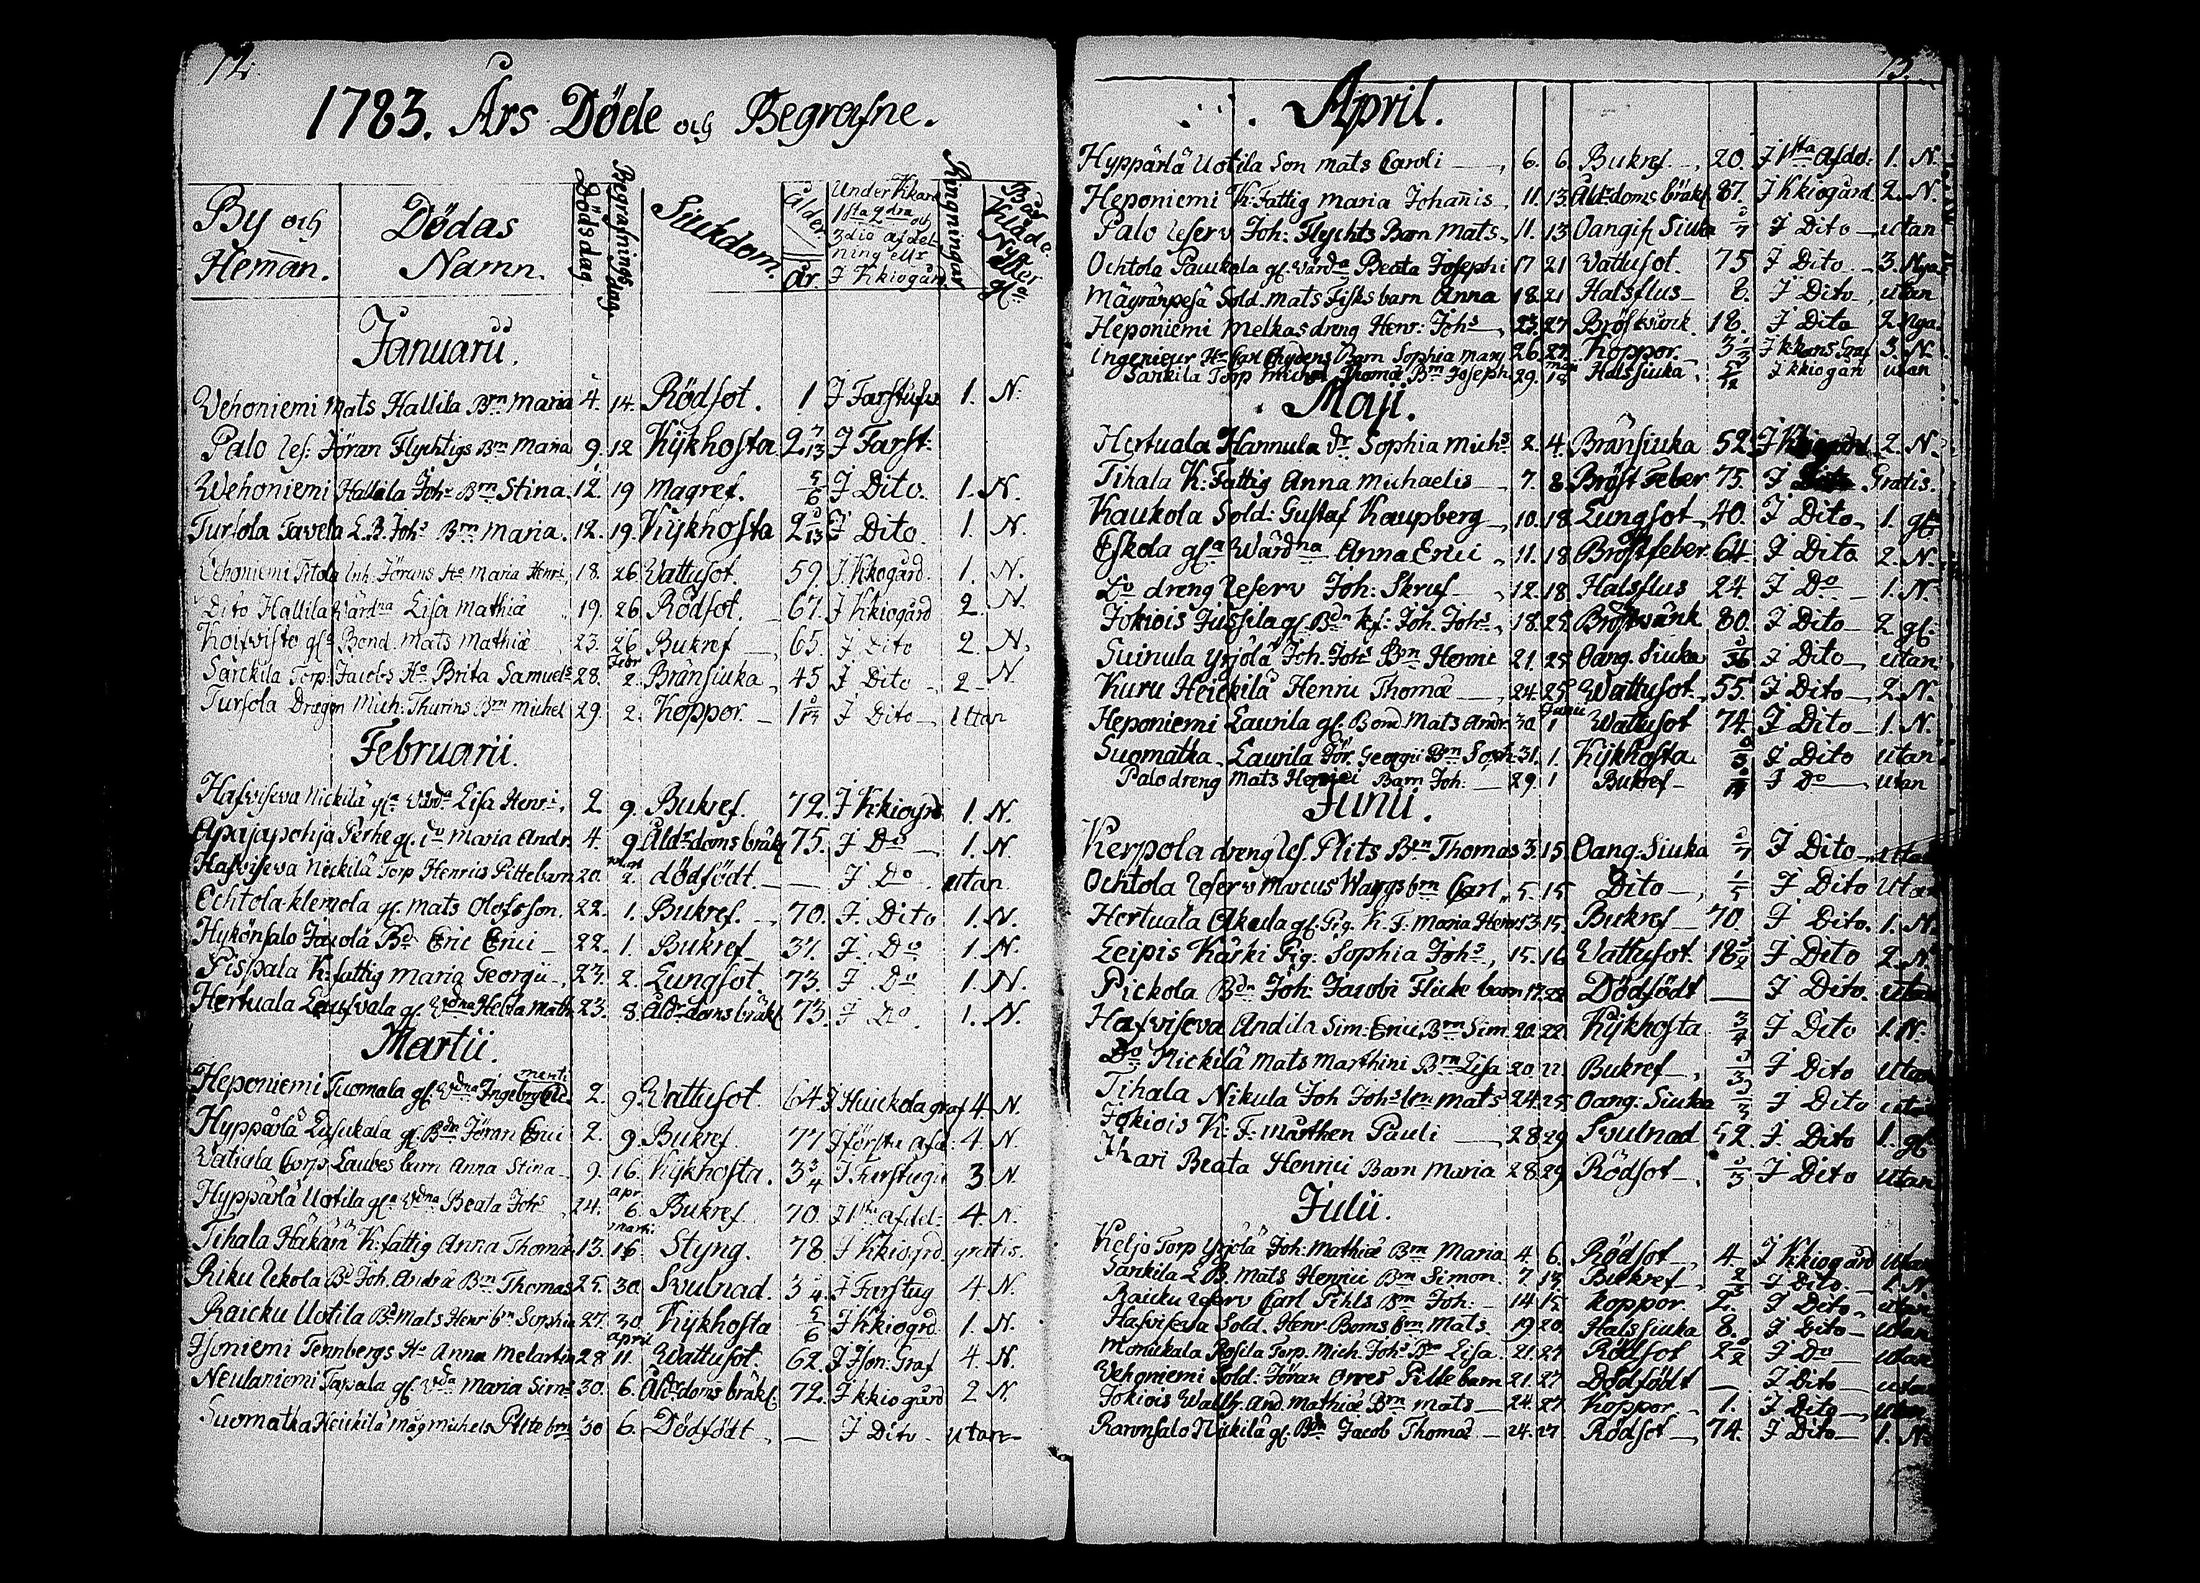 72.
1783. Års Döde och Begrafne.
By och Heman.
Dödas Namn.
Dödsdag.
Begrafnings dag.
Siukdom.
ålder år.
Under Kkans 1sta 2dra och 3die afdelning ellr J Kkiogård
Ringningar
Bår Kläde Nya eller gl:
Januarii.
Vehoniemi Mats Hallila Brn Maria 4. 14. Rödsot. 1 J Farstufw 1. N.
Palo Res: Jöran Flychtigs Brn Maria 9. 12 Kijkhosta 2 7/13 J Farst:
Wehoniemi Hallila Joh: Brn Stina. 12. 19 Magref. 5/6 J Dito. 1. N.
Tursola Tavela L.B. Johs Brn Maria. 12. 19. Kijkhosta 2 J Dito. 1. N.
Vehoniemi Pitola Inh. Jörans Ho Maria Henri 18. 26 Wattusot. 59. J. Kkogård. 1. N.
Dito Hallila Wärdna Lisa Mathiæ 19. 26. Rödsot. 67. J Kkiogård 2. N.
Koifvisto gla Bond. Mats Mathiæ 23. 26 Bukref 65. J Dito 2. N.
Särckilä Torp: Jacobs Ho Brita Samuels 28. Febr 2. Bränsiuka 45 J Dito 2 N
Tursola Dragon Mich: Thurins Brn Michel 29. 2. Koppor. 1 J Dito Utan
Februarii.
Hafviseva Nickilä gla Wärdna Lisa Henri. 2 9. Bukref. 72. J Kkiogrd 1. N.
Apajapohja Perhe gl. do Maria Andr. 4. 9. Åldrdoms bräkl 75. J Do 1. N.
Hafviseva Nickilä Torp Henrics Pittebarn 20. Mart 2. dödfödt. J Do utan
Echtola Klemola gl. Mats Olofsson. 22. 1. Bukref. 70. J. Dito 1. N.
Hykönsalo Jacola Bd Eric Erici 22. 1. Bukref 37. J. Do 1. N.
Pispala K: fattig Maria Georgii 23. 2. Lungsot. 73. J Do 1. N.
Hertuala Laufvala gl. Wdna Hebla Math 23. 8. Åldrdoms bräkl 73. J Do. 1. N.
Martii.
Heponiemi Tuomala gl. Wdna Ingeborg 2. 9. Wattusot. 64. J Huickola graf 4 N.
Hyppärlä Eusukala gl. Bdn Jöran Erici 2. 9. Bukref. 77 J första afd. 4 N.
Vatiala Corp. Laubes barn Anna Stina 9. 16. Kijkhosta. 3 3/4 J Farstugu 3 N
Hyppärlä Uotila gla Wdna Beata Johs 24. apr 6. Bukref 70. J 1sta afdel: 4. N.
Tihala Håkarn K: fattig Anna Thomæ 13. Martii 16. Styng. 78 J Kkiogrd gratis.
Riku Uckola Bd Joh. Andræ Brn Thomas 25. 30. Svulnad. 3 1/4 J Farstug 4 N.
Raicku Uotila Bd Mats Henr brn Sophia 27. 30. Kijkhosta 5/6 J Kkiogrd. 1. N.
Isoniemi Tennbergs Ho Anna Melartin 28 april 11. Wattusot. 62. J Ison: Graf 4. N.
Neulaniemi Tavala gl. Wdna Maria Sims 30. 6. Åldrdoms bräkl. 72. J kkiogård 2 N.
Suomatka Heickilä Måg Michels Pitte brn 30 6. Dödfödt J Dito utan
73.
April.
Hyppärlä Uotila Son Mats Caroli 6. 6 Bukref. 20. J 1sta Afdd: 1. N.
Heponiemi K: Fattig Maria Johannis 11. 13. Åldrdoms bräkl. 87. J Kkiogård 2. N.
Palo Reserv Joh: Flychts Barn Mats 11. 13 Oangif Siuka J Dito utan
Ochtola Paukala gl. Wärdna Beata Josephi 17 21 Wattusot. 75 J Dito 3. Nya
Mägränpesä Sold. Mats Fisks barn Anna 18. 21 Halsflus 8. J Dito utan
Heponiemi Melkas dreng Henr: Johs 23. 27 Bröstvärck. 18. J Dito 2 Nya
Ingenieur Hr Carl Chydens Barn Sophia Mary 26. 27. Koppor. 3 1/3 J kkans Graf 3. N.
Särkilä Torp Michel Thomæ Brn Joseph 29. Maii 18 Halssiuka J kkiogår utan
Maji.
Hertuala Hannula dr Sophia Michs 2. 4. Bränsiuka 52. J Kkiogård 2. N.
Tihala K: Fattig Anna Michaelis 7. 8. Bröst Feber 75. J Dito Gratis.
Kaukola Sold: Gustaf Kaupberg 10. 18. Lungsot 40. J Dito 1. gla
Eskola gla Wärdna Anna Erici 11. 18 Bröstfeber 64. J Dito 2. N.
Do dreng Reserv Joh: Skruf 12. 18. Halsflus 24. J Do 1. N.
Jokiois Jussila gl. Bdn kf: Joh. Johs 18. 25. Bröstvärk 80. J Dito 2 gl:
Suinula Yrjölä Joh. Johs Brn Henric 21. 25 Oang. Siuka J Dito utan
Kuru Heickilä Henric Thomæ 24. 25 Wattusot 55. J Dito 2. N.
Heponiemi Laurila gl. Bond Mats Andr 30. Junii 1 Wattusot 74. J Dito 1. N.
Suomatka Laurila Jör. Georgii Brn Soph 31. 1. Kijkhosta J Dito utan
Palo dreng Mats Henrici Barn Joh. 29. 1 Bukref J Do utan
Junii.
Kerpola dreng Res. Plits Brn Thomas 3. 15. Oang. Siuka J Dito utan
Ochtola Reserv Marcus Waygs brn Carl 5. 15 Dito 1/5 J Dito Utan
Hertuala Akala gl. Pig. K. F. Maria Henr 13. 15. Bukref 70. J Dito. 1. N.
Leipis Kärki Pig: Sophia Johs 15. 16 Wattusot 18 J Dito 2. N.
Pickola Bdn Joh. Jacobi Flicke barn 17. 22 Dödfödt J Dito. utan
Hafviseva Andila Sim: Erici Brn Sim 20. 22 Kijkhosta 3/4 J Dito 1. N.
Do Nickilä Mats Marthini Brn Lisa 20 22 Bukref J Dito utan
Tihala Nikula Joh Johs brn Mats 24. 25. Oang: Siuka J Dito utan
Jokiois K: F: Marthen Pauli 28 29 Svulnad 52. J. Dito 1. gl
Ihari Beata Henrici Barn Maria 28. 29. Rödsot J Dito utan
Julii.
Keljo Torp Yrjölä Joh: Mathiæ Brn Maria 4 6. Rödsot 4. J Kkiogård utan
Särkilä L B. Mats Henrici Brn Simon. 7. 13. Bukref J Dito 1. N.
Raicku Reserv Carl Pihls Brn Joh: 14 15 Koppor. 2. J Dito utan
Hafviseva Sold. Henr. Boms brn Mats. 19 20. Halssiuka 8. J Dito utan
Moniukala Rosila Torp. Mich. Johs Brn Lisa. 21. 27 Rödsot J Do utan
Vehoniemi Sold: Jöran Orres Pitte barn 21. 27 Dödfödt J Dito utan
Jokiois Wallb. And. Mathiæ Brn Mats 24. 27. Koppor 1. J Dito utan
Raronsalo Nickilä gl. Bdn Jacob Thomæ 24. 27 Rödsot 74. J Dito 1. N.